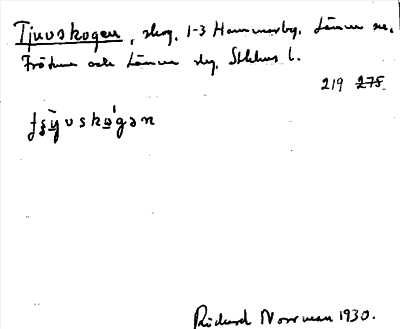 Tjuvskogen, skog, 1-3 Hammarby, Länna sn,
Frötuna och Länna skg, Sthlms l.
219 275
Richard Norrman 1930.